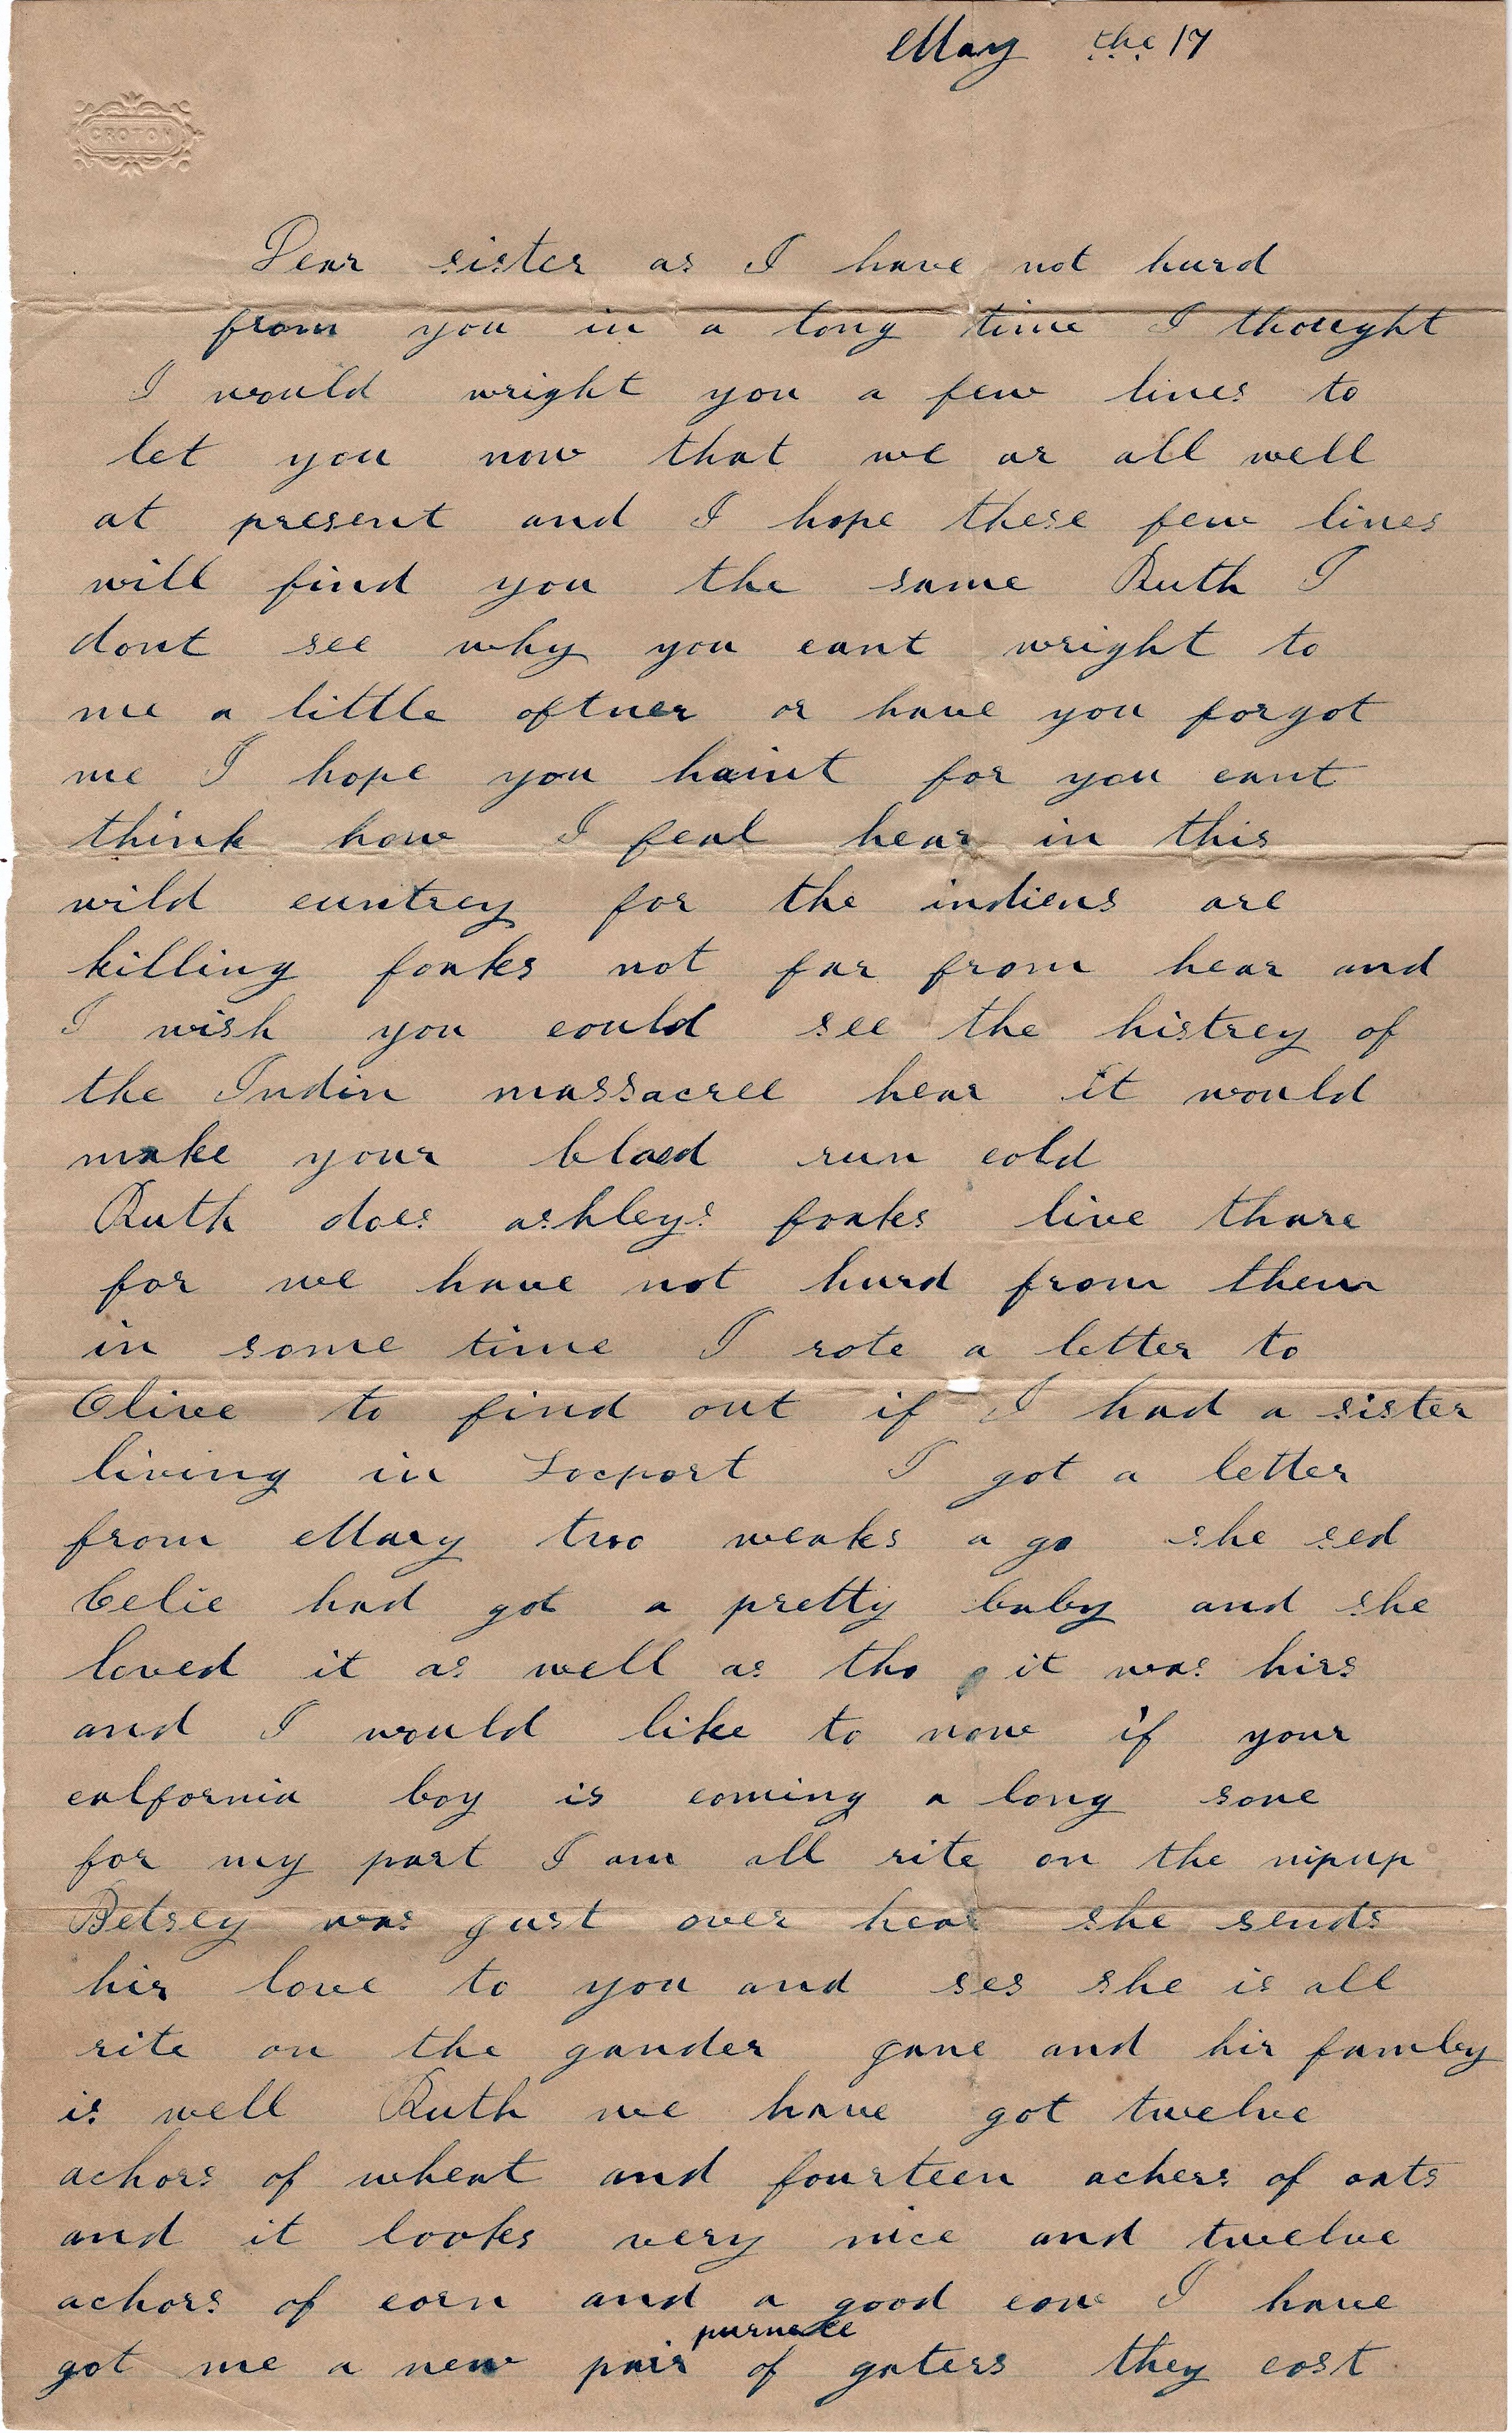 May the 17
CROTON
Dear sister as I have not hurd
from you in a long time I thought
I would wright you a few lines to
let you now that we ar all well
at present and I hope these few lines
will find you the same Ruth I
dont see why you cant wright to
me a little oftner or have you forgot
me I hope you haint for you cant
think how I feal hear in this
wild cuntrey for the indiens are
killing foaks not far from hear and
I wish you could see the histrey of
the Indin massacree hear it would
make your blood run cold
Ruth does ashleys foaks live thare
for we have not hurd from them
in some time I rote a letter to
Olive to find out if I had a sister
living in Locport I got a letter
from Mary two weaks a go she sed
Celie had got a pretty baby and she
loved it as well as tho it was hirs
and I would like to now if your
calfornia boy is coming a long sone
for my part I am all rite on the nipup
Betsey was gust over hear she sends
hir love to you and ses she is all
rite on the gander gane and hir famley
is well Ruth we have got twelve
achors of wheat and fourteen achers of oats
and it looks very nice and twelve
achors of corn and a good cow I have
got me a new pair of gaters they cost